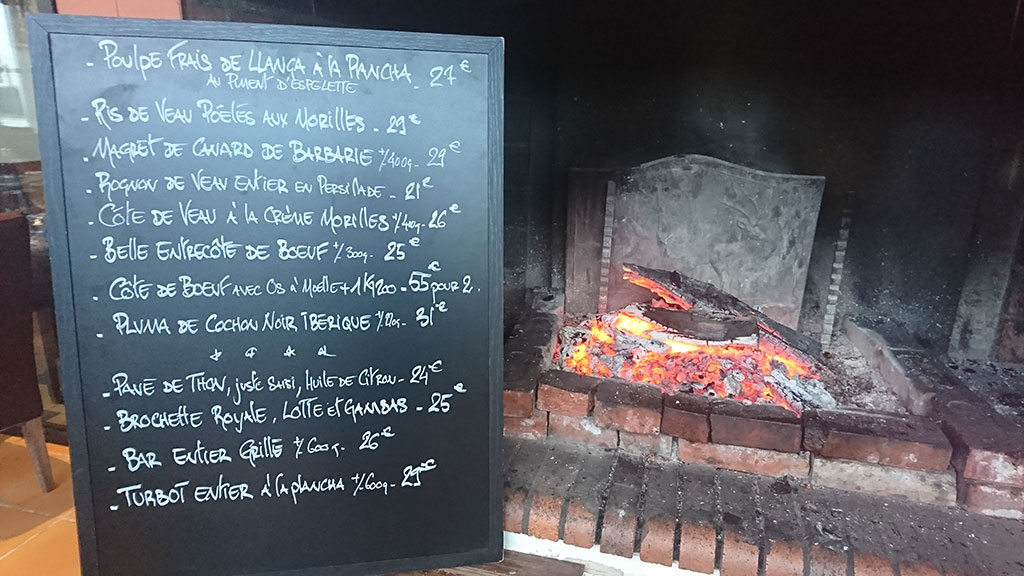 - POULPE FRAIS DE LLANÇA À LA PLANCHA - 27€
AU PIMENT D'ESPELETTE
- RIS DE VEAU POÊLÉS AUX MORILLES - 29€
- MAGRET DE CANARD DE BARBARIE +/400g - 29€
- ROGNON DE VEAU ENTIER EN PERSILLADE - 21€
- CÔTE DE VEAU À LA CRÈME MORILLES +/400g - 26€
- BELLE ENTRECÔTE DE BOEUF +/300g - 25€
- CÔTE DE BOEUF AVEC OS À MOELLE + 1KG200 - 55€ POUR 2.
- PLUMA DE COCHON NOIR IBERIQUE - 31€
- PAVÉ DE THON, JUSTE SAISI, HUILE DE CITRON - 24€
- BROCHETTE ROYALE, LOTTE ET GAMBAS - 25€
- BAR ENTIER GRILLÉ +/600g - 26€
- TURBOT ENTIER À LA PLANCHA +/600g - 29€